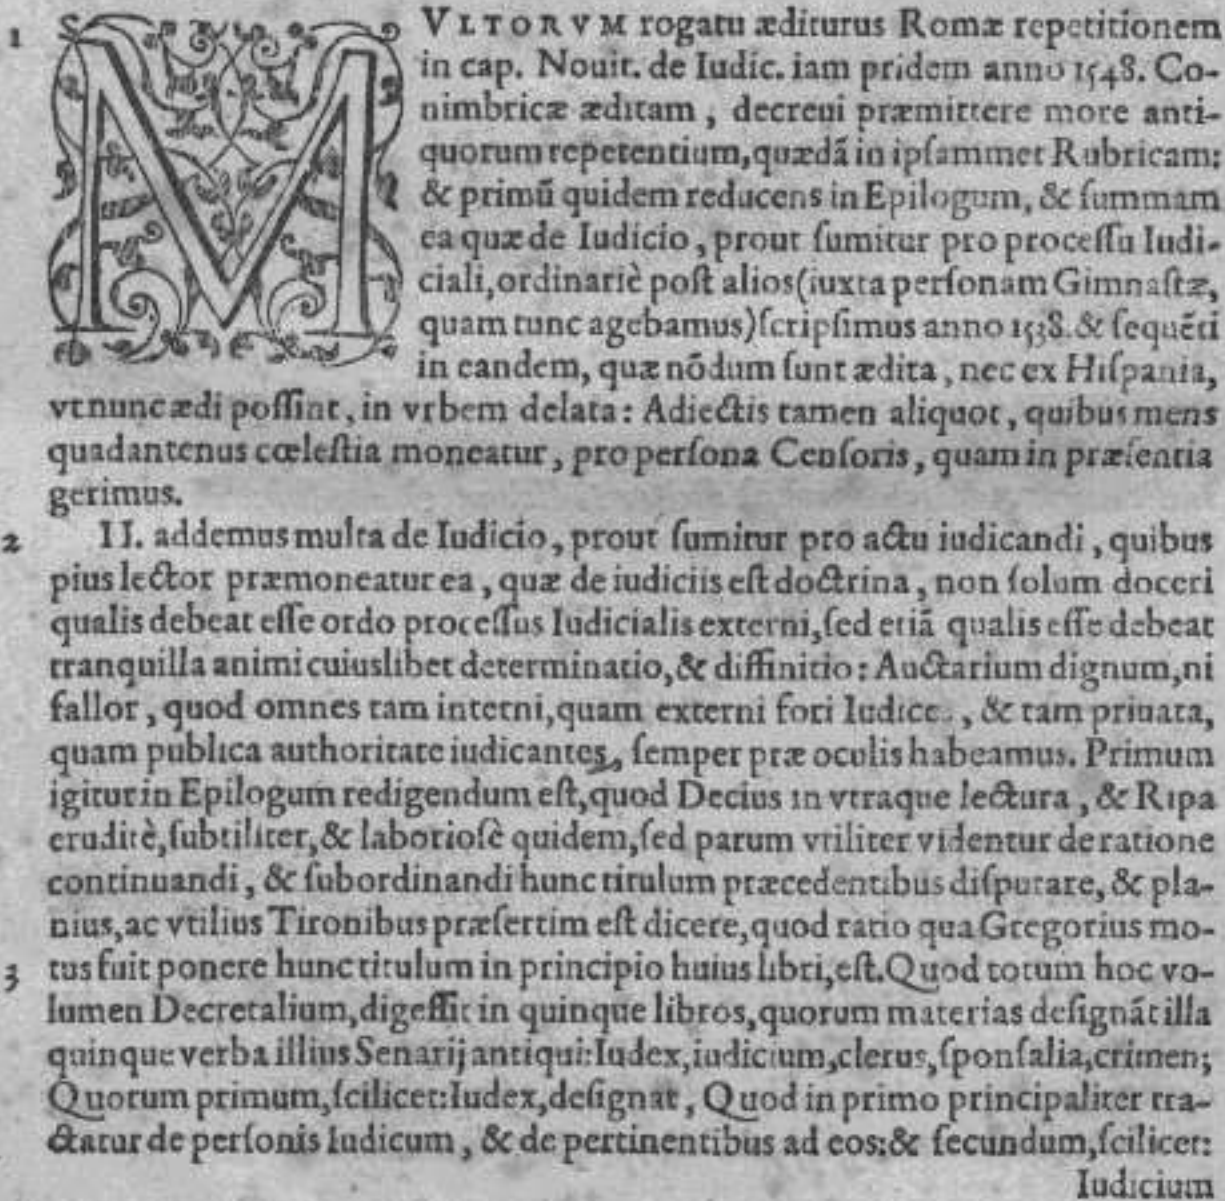 1 MVLTORVM rogatu æditurus Romæ repetitionem
in cap. Nouit. de Iudic. iam pridem anno 1548. Co-
nimbricæ æditam, decreui præmittere more anti-
quorum repetentium, quædã in ipſammet Rubricam:
& primũ quidem reducens in Epilogum, & ſummam
ea quæ de Iudicio, prout ſumitur pro proceſſu Iudi-
ciali, ordinariè poſt alios (iuxta perſonam Gimnaſtæ,
quam tunc agebamus) ſcripſimus anno 1538. & ſequẽti
in eandem, quæ nõdum ſunt ædita, nec ex Hiſpania,
vt nunc ædi poſſint, in vrbem delata: Adiectis tamen aliquot, quibus mens
quadantenus cœleſtia moneatur, pro perſona Cenſoris, quam in præſentia
gerimus.
2 II. addemus multa de Iudicio, prout ſumitur pro actu iudicandi, quibus
pius lector præmoneatur ea, quæ de iudiciis eſt doctrina, non ſolum doceri
qualis debeat eſſe ordo proceſſus Iudicialis externi, ſed etiã qualis eſſe debeat
tranquilla animi cuiuslibet determinatio, & diffinitio: Auctarium dignum, ni
fallor, quod omnes tam interni, quam externi fori Iudice., & tam priuata,
quam publica authoritate iudicantes, ſemper præ oculis habeamus. Primum
igitur in Epilogum redigendum eſt, quod Decius in vtraque lectura, & Ripa
eruditè, ſubtiliter, & laborioſè quidem, ſed parum vtiliter videntur de ratione
continuandi, & ſubordinandi hunc titulum præcedentibus diſputare, & pla-
nius, ac vtilius Tironibus præſertim eſt dicere, quod ratio qua Gregorius mo-
3 tus fuit ponere hunc titulum in principio huius libri, eſt. Quod totum hoc vo-
lumen Decretalium, digeſſit in quinque libros, quorum materias deſignãt illa
quinque verba illius Senarij antiqui: Iudex, iudicium, clerus, ſponſalia, crimen;
Quorum primum, ſcilicet: Iudex, deſignat, Quod in primo principaliter tra-
ctatur de perſonis Iudicum, & de pertinentibus ad eos: & ſecundum, ſcilicet:
Iudicium